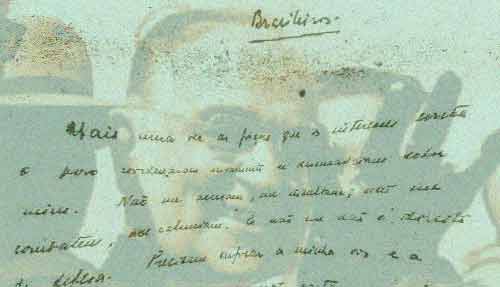 Brasileiros.
Mais uma vez as forças que os interesses contra
o povo coordenaram novamente se desencadeiam sobre
mim. Não me acusam, me insultam; não me
combatem, me caluniam. E não me dão o direito
de defesa. Precisam sufocar a minha voz e a